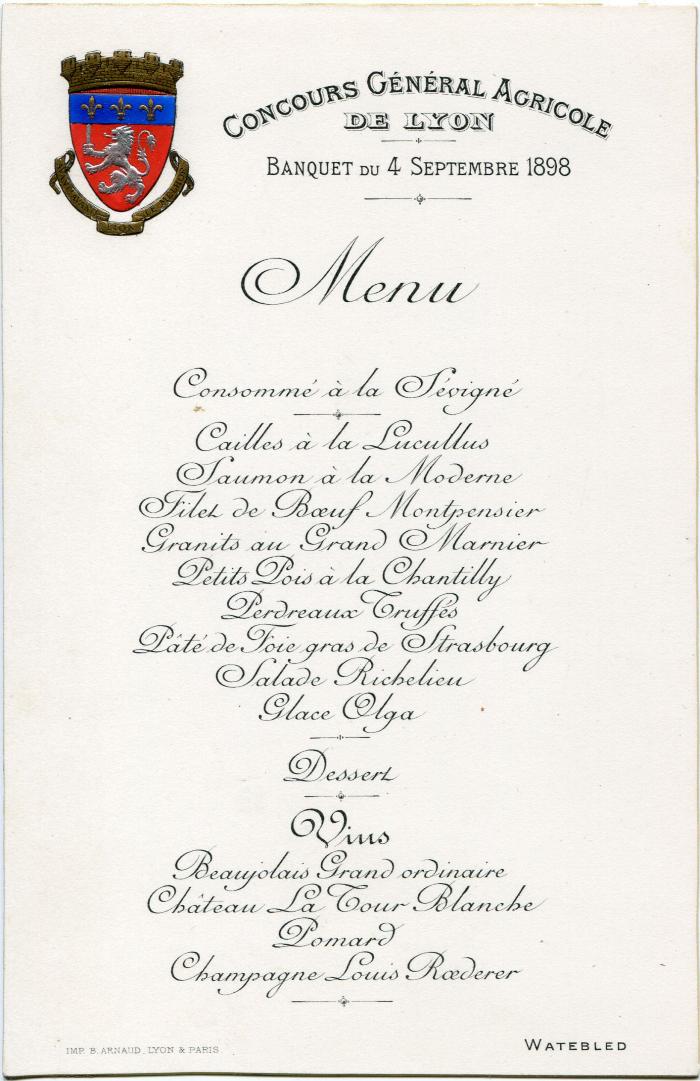 CONCOURS GÉNÉRAL AGRICOLE
DE LYON
BANQUET DU 4 SEPTEMBRE 1898
Menu
Consommé à la Sévigné
Cailles à la Lucullus
Saumon à la Moderne
Filet de Bœuf Montpensier
Granits au Grand Marnier
Petits Pois à la Chantilly
Perdreaux Truffés
Pâté de Foie gras de Strasbourg
Salade Richelieu
Glace Olga
Dessert
Vins
Beaujolais Grand ordinaire
Château La Tour Blanche
Pomard
Champagne Louis Rœderer
IMP. B. ARNAUD, LYON & PARIS
WATEBLED